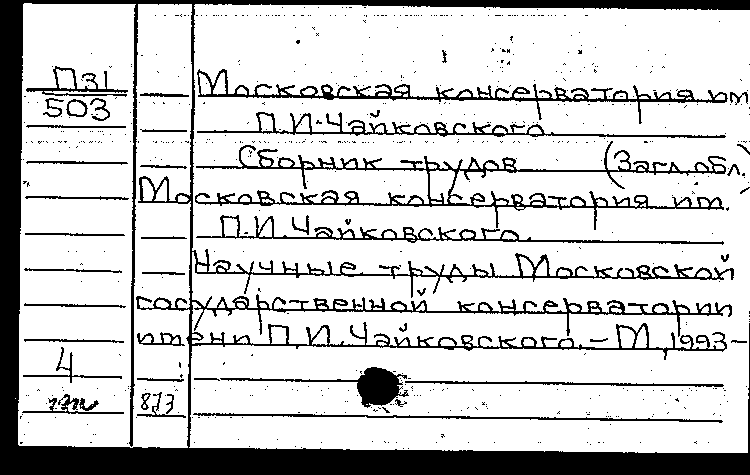 П31
503
Московская консерватория им
П.И.Чайковского.
Сборник трудов (Загл.обл.)
Московская консерватория им.
П.И.Чайковского.
Научные труды Московской
государственной консерватории
имени П.И.Чайковского. – М.,1993–
4
873